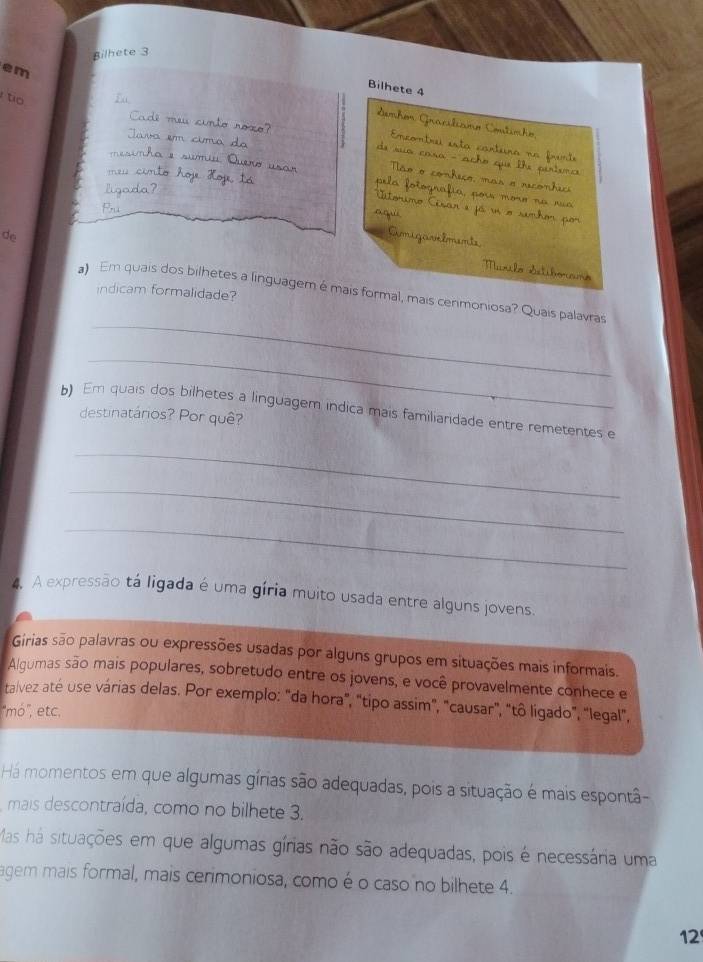 Bilhete 3
em
tio
de
Lu
Cadê meu cinto roxo?
Tava em cima da
mesinha e sumiu. Quero usar
meu cinto hoje. Hoje, tá
ligada?
Pri
Bilhete 4
Senhor Graciliano Coutinho,
Encontrei esta carteira na frente
de sua casa – acho que lhe pertence.
Não o conheço, mas o reconheci
pela fotografia, pois moro na rua
Vitorino César e já vi o senhor por
aqui.
Amigavelmente,
Murilo
a) Em quais dos bilhetes a linguagem é mais formal, mais cerimoniosa? Quais palavras
indicam formalidade?
b) Em quais dos bilhetes a linguagem indica mais familiaridade entre remetentes e
destinatários? Por quê?
4. A expressão tá ligada é uma gíria muito usada entre alguns jovens.
Gírias são palavras ou expressões usadas por alguns grupos em situações mais informais.
Algumas são mais populares, sobretudo entre os jovens, e você provavelmente conhece e
talvez até use várias delas. Por exemplo: "da hora", "tipo assim", "causar", "tô ligado", "legal",
"mó", etc.
Há momentos em que algumas gírias são adequadas, pois a situação é mais espontâ-
, mais descontraída, como no bilhete 3.
Mas há situações em que algumas gírias não são adequadas, pois é necessária uma
agem mais formal, mais cerimoniosa, como é o caso no bilhete 4.
12